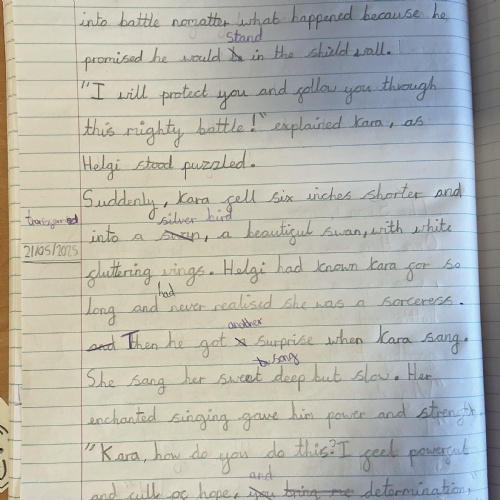 into battle nomatter what happened because he
stand
promised he would in the shield wall.
"I will protect you and follow you through
this mighty battle!" explained Kara, as
Helgi stood puzzled.
Suddenly, Kara fell six inches shorter and
silver bird
into a swan, a beautiful swan, with white
21/05/2025
fluttering wings. Helgi had known Kara for so
had
long and never realised she was a sorceress.
another
and Then he got surprise when Kara sang.
song
She sang her sweet deep but slow. Her
enchanted singing gave him power and strength.
"Kara, how do you do this? I feel powerful
and
and full of hope, you bring me determination,